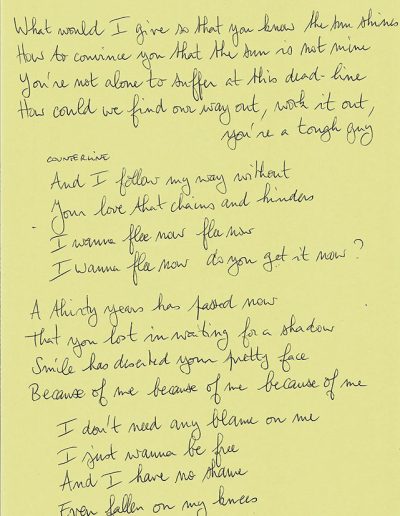 What would I give so that you know the sun shines
How to convince you that the sun is not mine
You're not alone to suffer at this dead-line
How could we find our way out, work it out,
you're a tough guy
COUNTERLINE
And I follow my way without
Your love that chains and hinders
I wanna flee now flee now
I wanna flee now do you get it now?
A thirsty years has passed now
That you lost in waiting for a shadow
Smile has deserted your pretty face
Because of me because of me because of me
I don't need any blame on me
I just wanna be free
And I have no shame
Even fallen on my knees